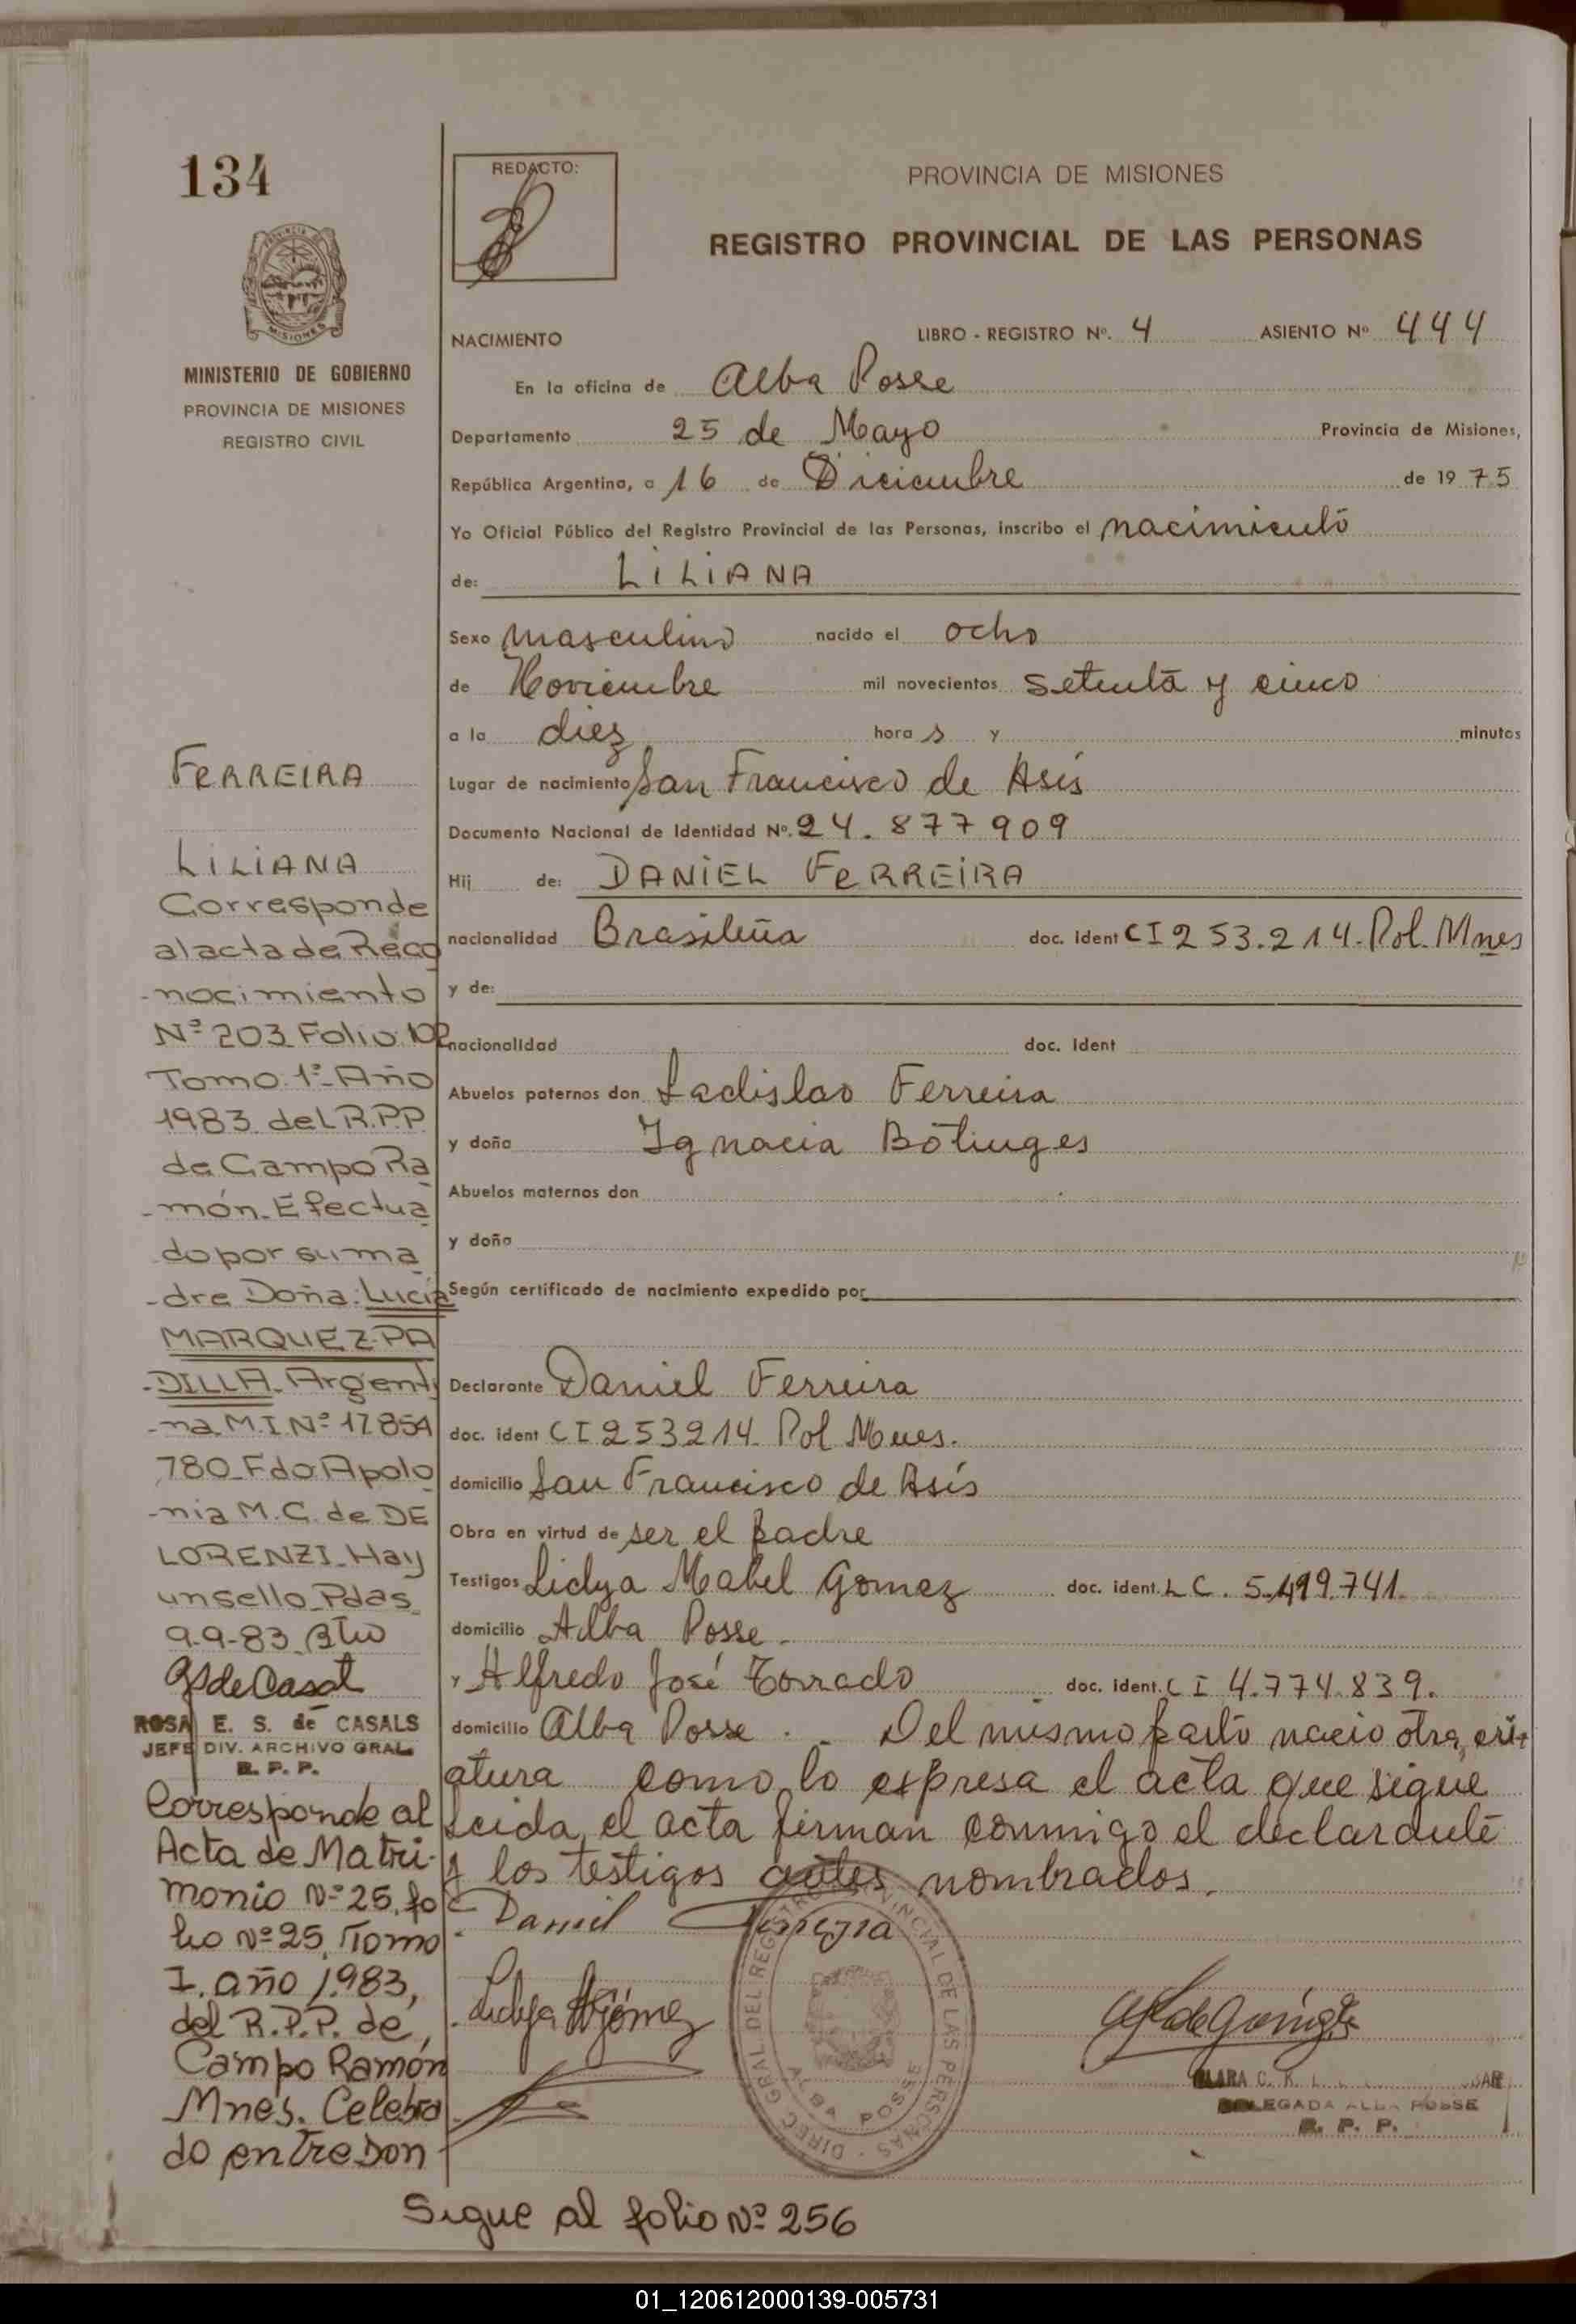 134
MISIONES
MINISTERIO DE GOBIERNO
PROVINCIA DE MISIONES
REGISTRO CIVIL
FERREIRA
LILIANA
Corresponde
al acta de Reco
-nocimiento
Nº 203 Folio 102
Tomo 1º Año
1983 del R.P.P
de Campo Ra
-món. Efectua
do por su ma
-dre Doña: Lucía
MARQUEZ. PA
-DILLA. Argenti
-na M.I Nº 17.854
780 Fdo Apolo
-nia M. C. de DE
LORENZI. Hay
un sello Pdas.
9-9-83
ROSA E. S. de CASALS
JEFE DIV. ARCHIVO GRAL.
R. P. P.
Corresponde al
Acta de Matri-
monio Nº 25, fo
lio Nº 25, Tomo
I. año 1983,
del R.P.P. de,
Campo Ramón
Mnes. Celebra
do entre Don
REDACTO:
PROVINCIA DE MISIONES
REGISTRO PROVINCIAL DE LAS PERSONAS
NACIMIENTO LIBRO - REGISTRO Nº. 4 ASIENTO Nº 444
En la oficina de Alba Posse
Departamento 25 de Mayo Provincia de Misiones,
República Argentina, a 16 de Diciembre de 1975
Yo Oficial Público del Registro Provincial de las Personas, inscribo el nacimiento
de: LILIANA
Sexo masculino nacido el ocho
de Noviembre mil novecientos setenta y cinco
a la diez hora s y minutos
Lugar de nacimiento San Francisco de Asís
Documento Nacional de Identidad Nº. 24.877909
Hij de: DANIEL FERREIRA
nacionalidad Brasileña doc. ident CI 253.214. Pol. Mnes
y de:
nacionalidad doc. ident
Abuelos paternos don Ladislao Ferreira
y doña Ignacia Botinges
Abuelos maternos don
y doña
Según certificado de nacimiento expedido por
Declarante Daniel Ferreira
doc. ident CI 253214 Pol Mnes.
domicilio San Francisco de Asís
Obra en virtud de ser el padre
Testigos Lidya Mabel Gomez doc. ident. LC. 5.499.741.
domicilio Alba Posse.
y Alfredo José Torrado doc. ident. CI 4.774.839.
domicilio Alba Posse. - Del mismo parto nacio otra cri-
atura como lo expresa el acta que sigue
Leida el acta firman conmigo el declarante
y los testigos antes nombrados.
Daniel
Lidya Gómez
DIREC GRAL. DEL REGISTRO PROVINCIAL DE LAS PERSONAS
ALBA POSSE
CLARA C. K.
DELEGADA ALBA POSSE
R. P. P.
Sigue al folio Nº 256
01_120612000139-005731